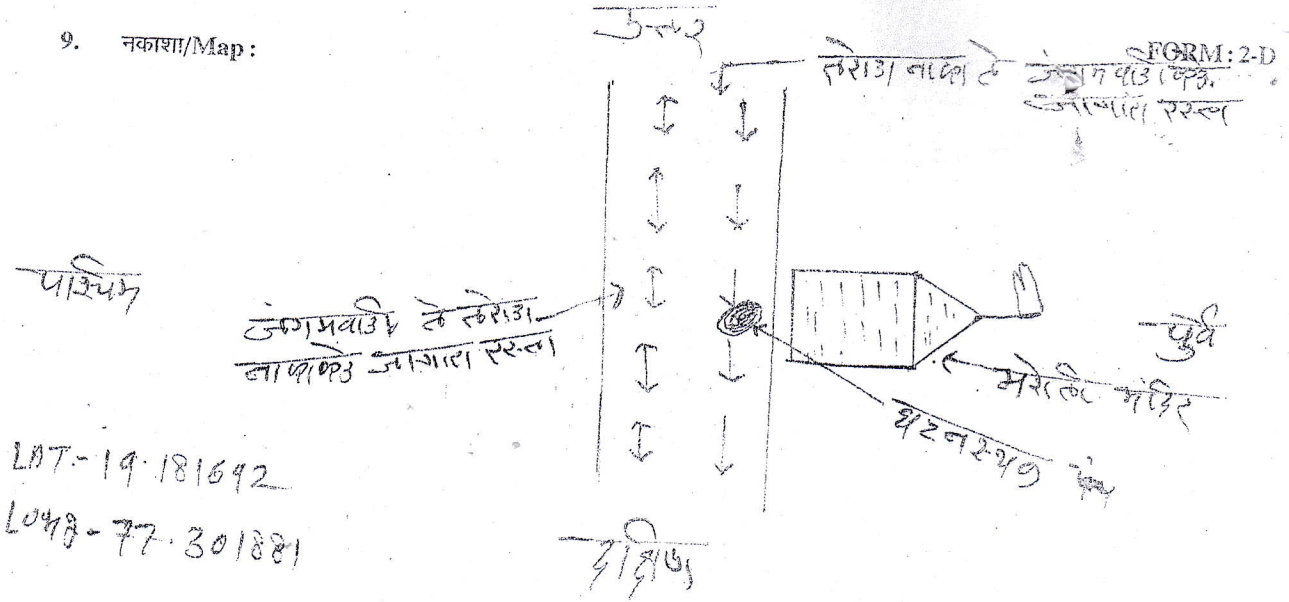 9. नकाशा/Map:
उत्तर
FORM: 2-D
तरोडा नाका ते जंगमवाडीकडे
जाणारा रस्ता
पश्चिम
जंगमवाडी ते तरोडा
नाकाकडे जाणारा रस्ता
पुर्व
मंदिर
घटनास्थळ
LAT.- 19.181692
LONG - 77.301881
दक्षिण